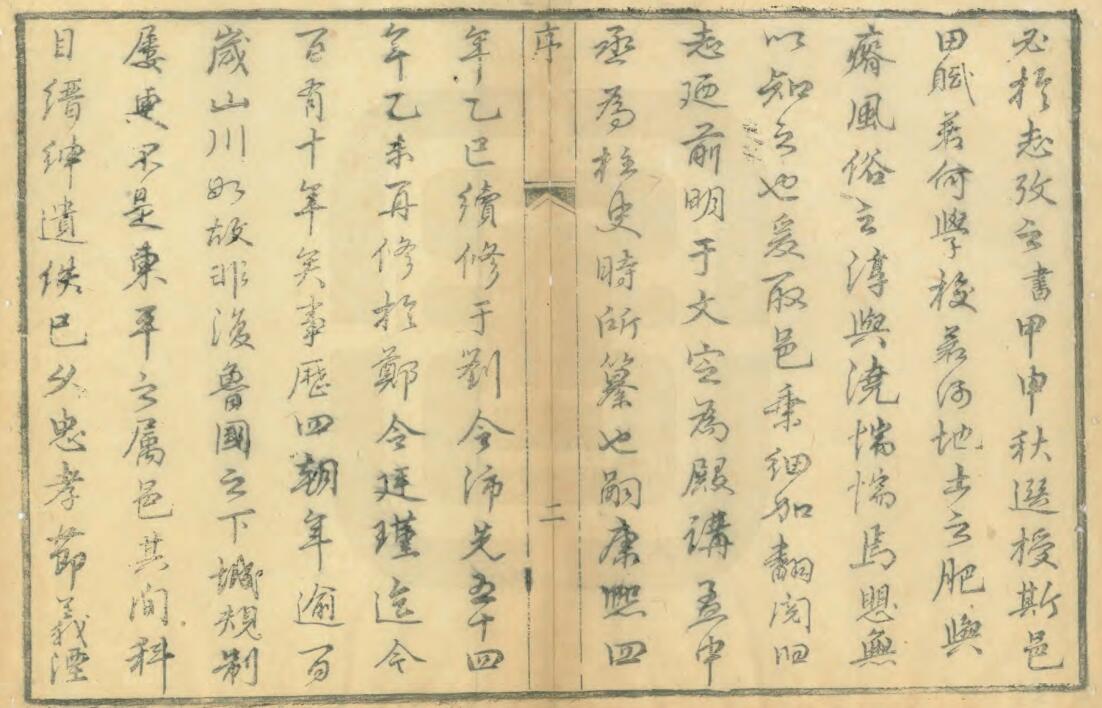 必於志攷之書甲申秋選授斯邑
田賦若何學校若何地土之肥與
瘠風俗之淳與澆惴惴焉思無
以知之也爰取邑乘細加翻閱旧
志廼前明于文定為殿講孟中
丞為柱史時所纂也嗣康熙四
序
二
年乙巳續修于劉令沛先五十四
年乙未再修於鄭令廷瑾迄今
百有十年矣事歷四朝年逾百
歲山川如故非復魯國之下城規制
屡更不是東平之属邑其间科
目缙紳遺佚已久忠孝節義湮